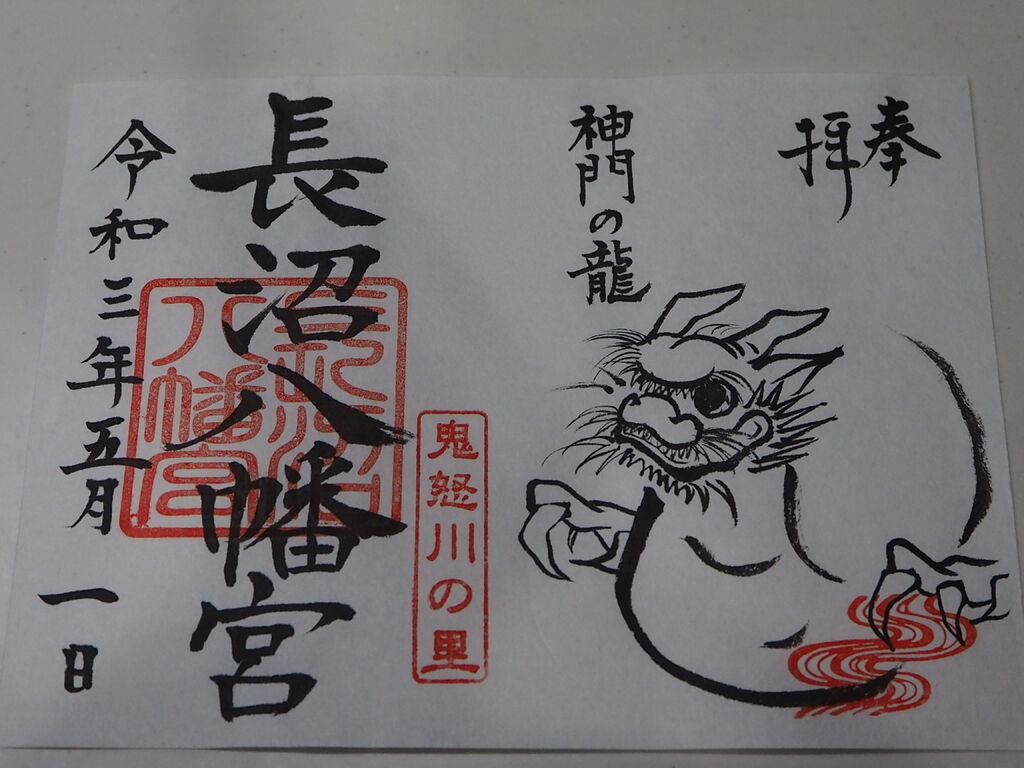 奉拝
神門の龍
長沼八幡宮
鬼怒川の里
令和三年五月一日